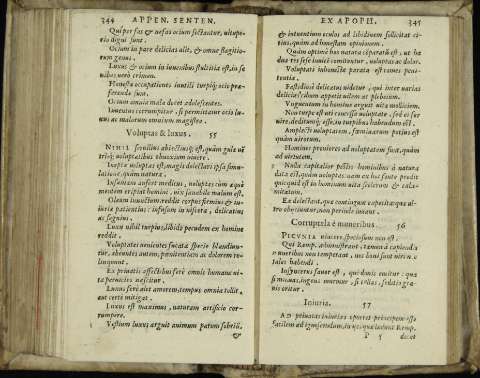 344 APPEN. SENTEN.
Qui per fas & nefas ocium sectantur, vitupe-
rio digni sunt.
Ocium in pare delicias alit, & omne flagitio-
rum genus.
Luxus & ocium in iuuenibus stultitia est, in se
nibus verò crimen.
Honestæ occupationes inutili turpiq; ocio præ-
ferenda sunt.
Ocium omnia mala docet adolescentes.
Iuuentus corrumpitur, si permittatur ociis lu-
xus ac malorum omnium magistra.
Voluptas & luxus. 55
NIHIL seruilius abiectiusq; est, quàm gulæ vē
trisq; voluptatibus obnoxium viuere.
Inepta voluptas est, magis delectari ipsa simu-
latione, quàm natura.
Insaniam aufert medicus, voluptas cùm æquè
mentem eripiat homini, vix sanabile malum est.
Oleum inunctum reddit corpus firmius & in-
iuriæ patientius: infusum in viscera, delicatius
ac segnius.
Luxu nihil turpius, libido pecudem ex homine
reddit.
Voluptates venientes fucata specie blandiun-
tur, abeuntes autem, pœnitentiam ac dolorem re-
linquunt.
Ex prauis affectibus ferè omnis humanæ vi-
tæ pernicies nascitur.
Luxus seræ ætis amorem, tempus omnia tollit,
aut certè mitigat.
Luxus est maximus, naturam artificio cor-
rumpere.
Vestium luxus arguit animum parum sobriū,
&
EX APOPH. 345
& intuentium oculos ad libidinem sollicitat ci-
tius, quàm ad honestam opinionem.
Quàm optimè hoc natura cōparatū est, ut hæ
duæ res sese inuicē comitentur, voluptas ac dolor.
Voluptati inhonestæ parata est comes pœni-
tentia.
Fastidiosi delicatus videtur, qui inter varias
delicias cibum appetit vilem ac plebeium.
Vnguentum in homine arguit vitæ mollitiem.
Non turpe est uti concessa voluptate, sed ei ser
uire, deditumq; esse, in turpibus habendum est.
Amplecti voluptatem, fœminarum potius est
quàm virorum.
Homines proniores ad voluptatem sunt, quàm
ad virtutem.
Nulla capitalior pestis hominibus à natura
data est, quàm voluptas: nam ex hoc fonte prodit
quicquid est in hominum vita scelerum & cala-
mitatum.
Ex delectant, quæ contingunt capessitaque al-
tro obueniunt, non perinde iuuant.
Corruptela è muneribus. 56
PECVNIA munere speciosum non est.
Qui Remp. administrant, tamen à capiendis
muneribus non temperant, vix boni sunt viri
tales habendi.
In syncerus fautor est, qui donis emitur: quæ
si mittas, ingens murmur, si tollas, seditio gra-
uis oritur.
Iniuria. 57
AD priuatas iniurias oportet principem esse
facilem ad ignoscendum, in ijs quæ lædunt Remp.
Y 5 decet